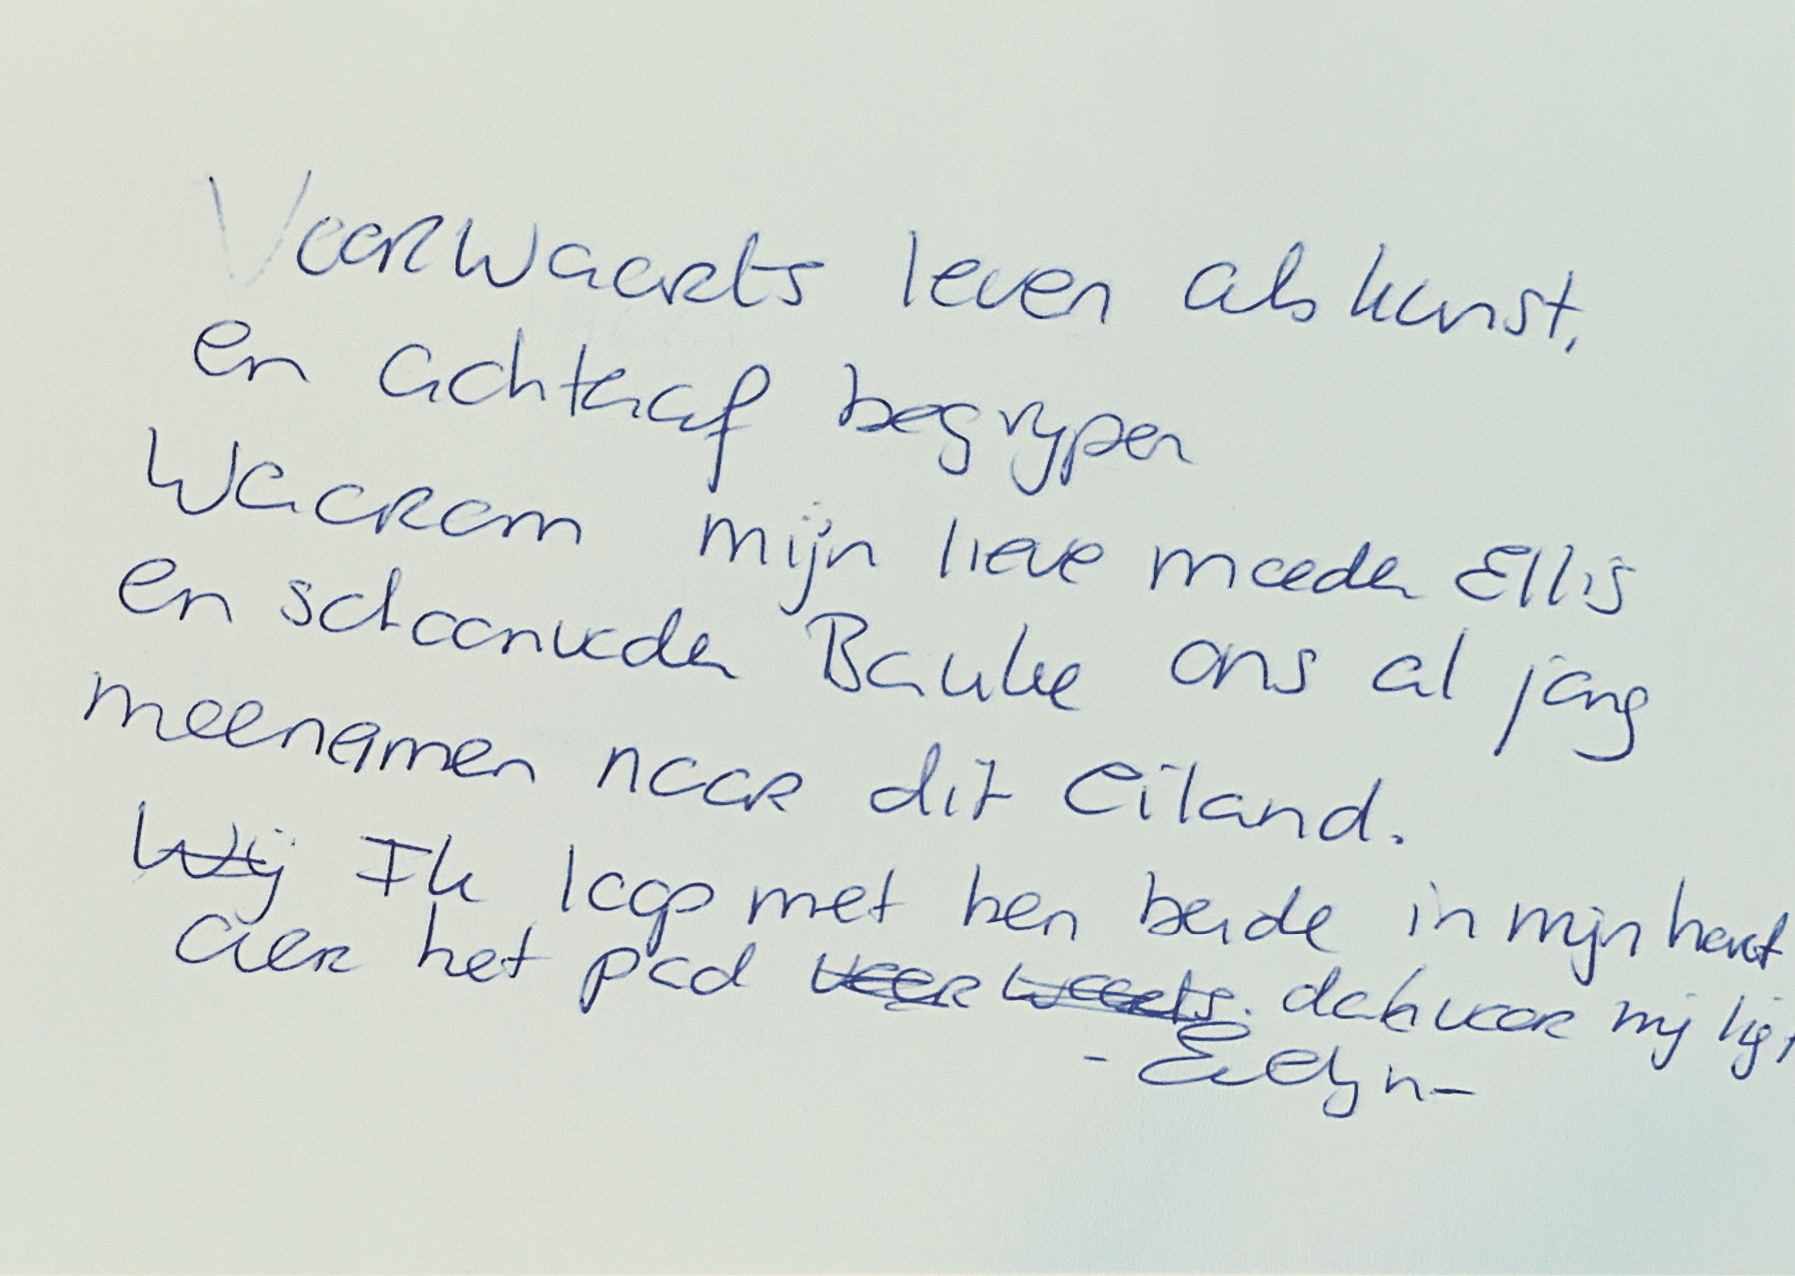 Voorwaarts leven als kunst,
en achteraf begrypen
Waarom mijn lieve moeder Ellis
en schoonvader Bauke ons al jong
meenamen naar dit eiland.
Wij Ik loop met hen beide in mijn hart
over het pad voorwaarts. dat voor mij ligt
- Evelyn -